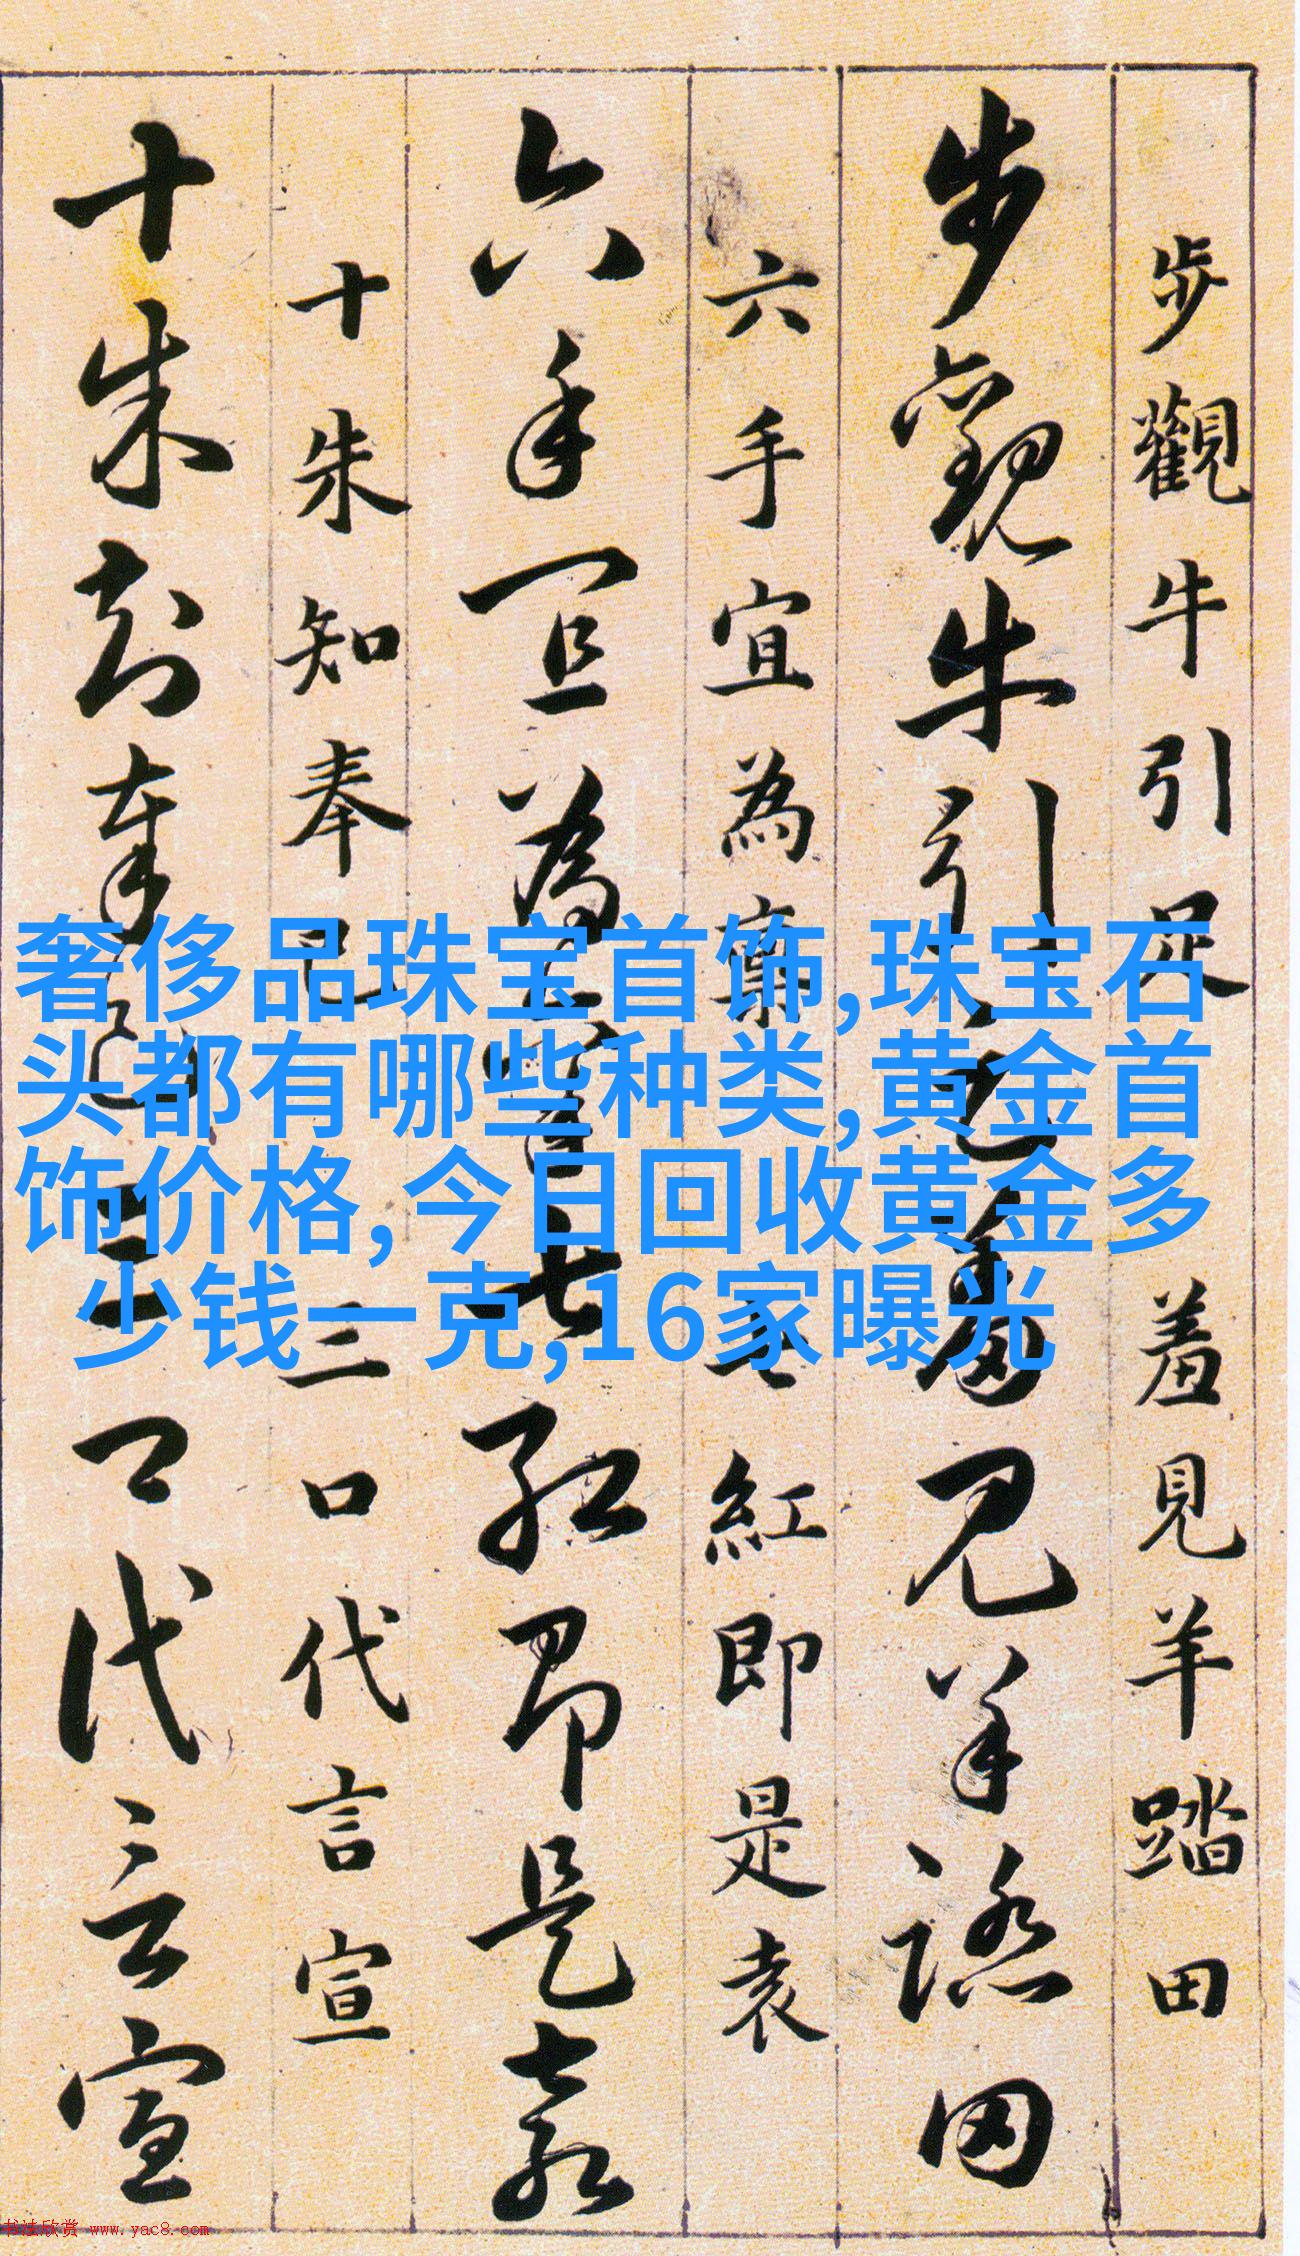 步觀牛引足羞見羊踏田
步觀牛引足羞見羊踏田
六手宜為稟七紅即是袁
六手宜為稟七紅即是袁
十朱知奉已三口代言宣
十朱知奉已三口代言宣
奢侈品珠宝首饰,珠宝石
头都有哪些种类,黄金首
饰价格,今日回收黄金多
少钱一克,16家曝光
书法欣赏 www.yac8.com